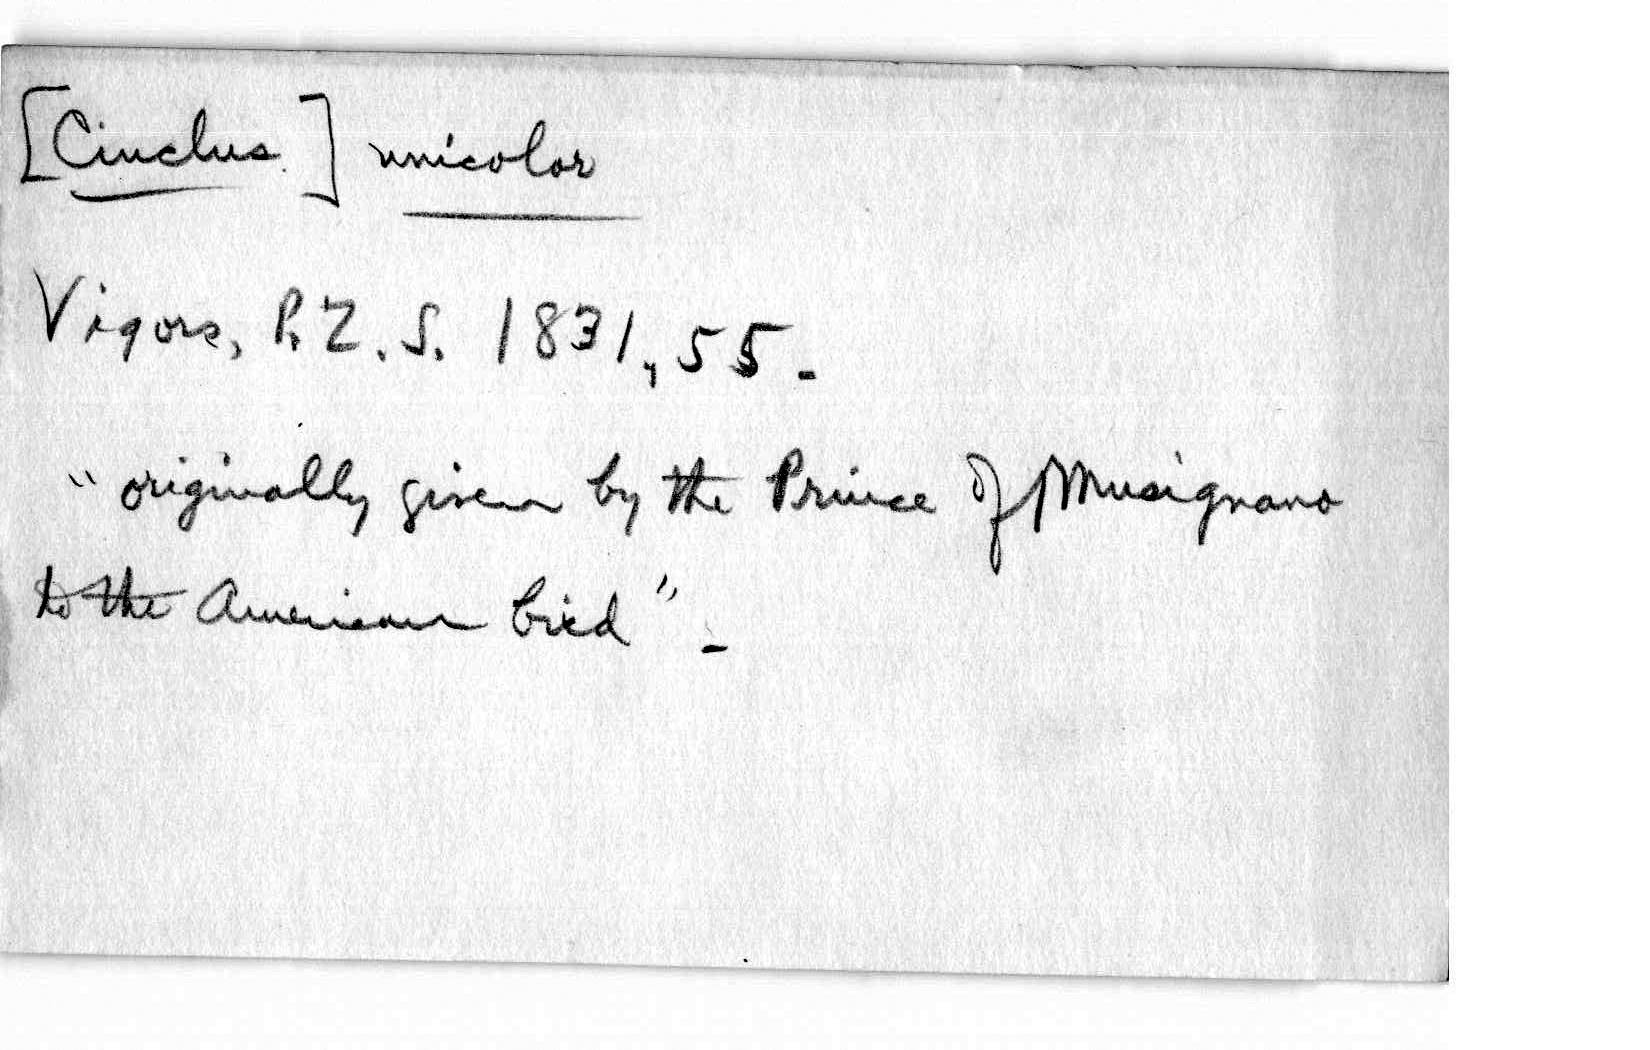 [Cinclus.] unicolor
Vigors, P.Z.S. 1831, 55.
"originally given by the Prince of Musignano
to the American bird".